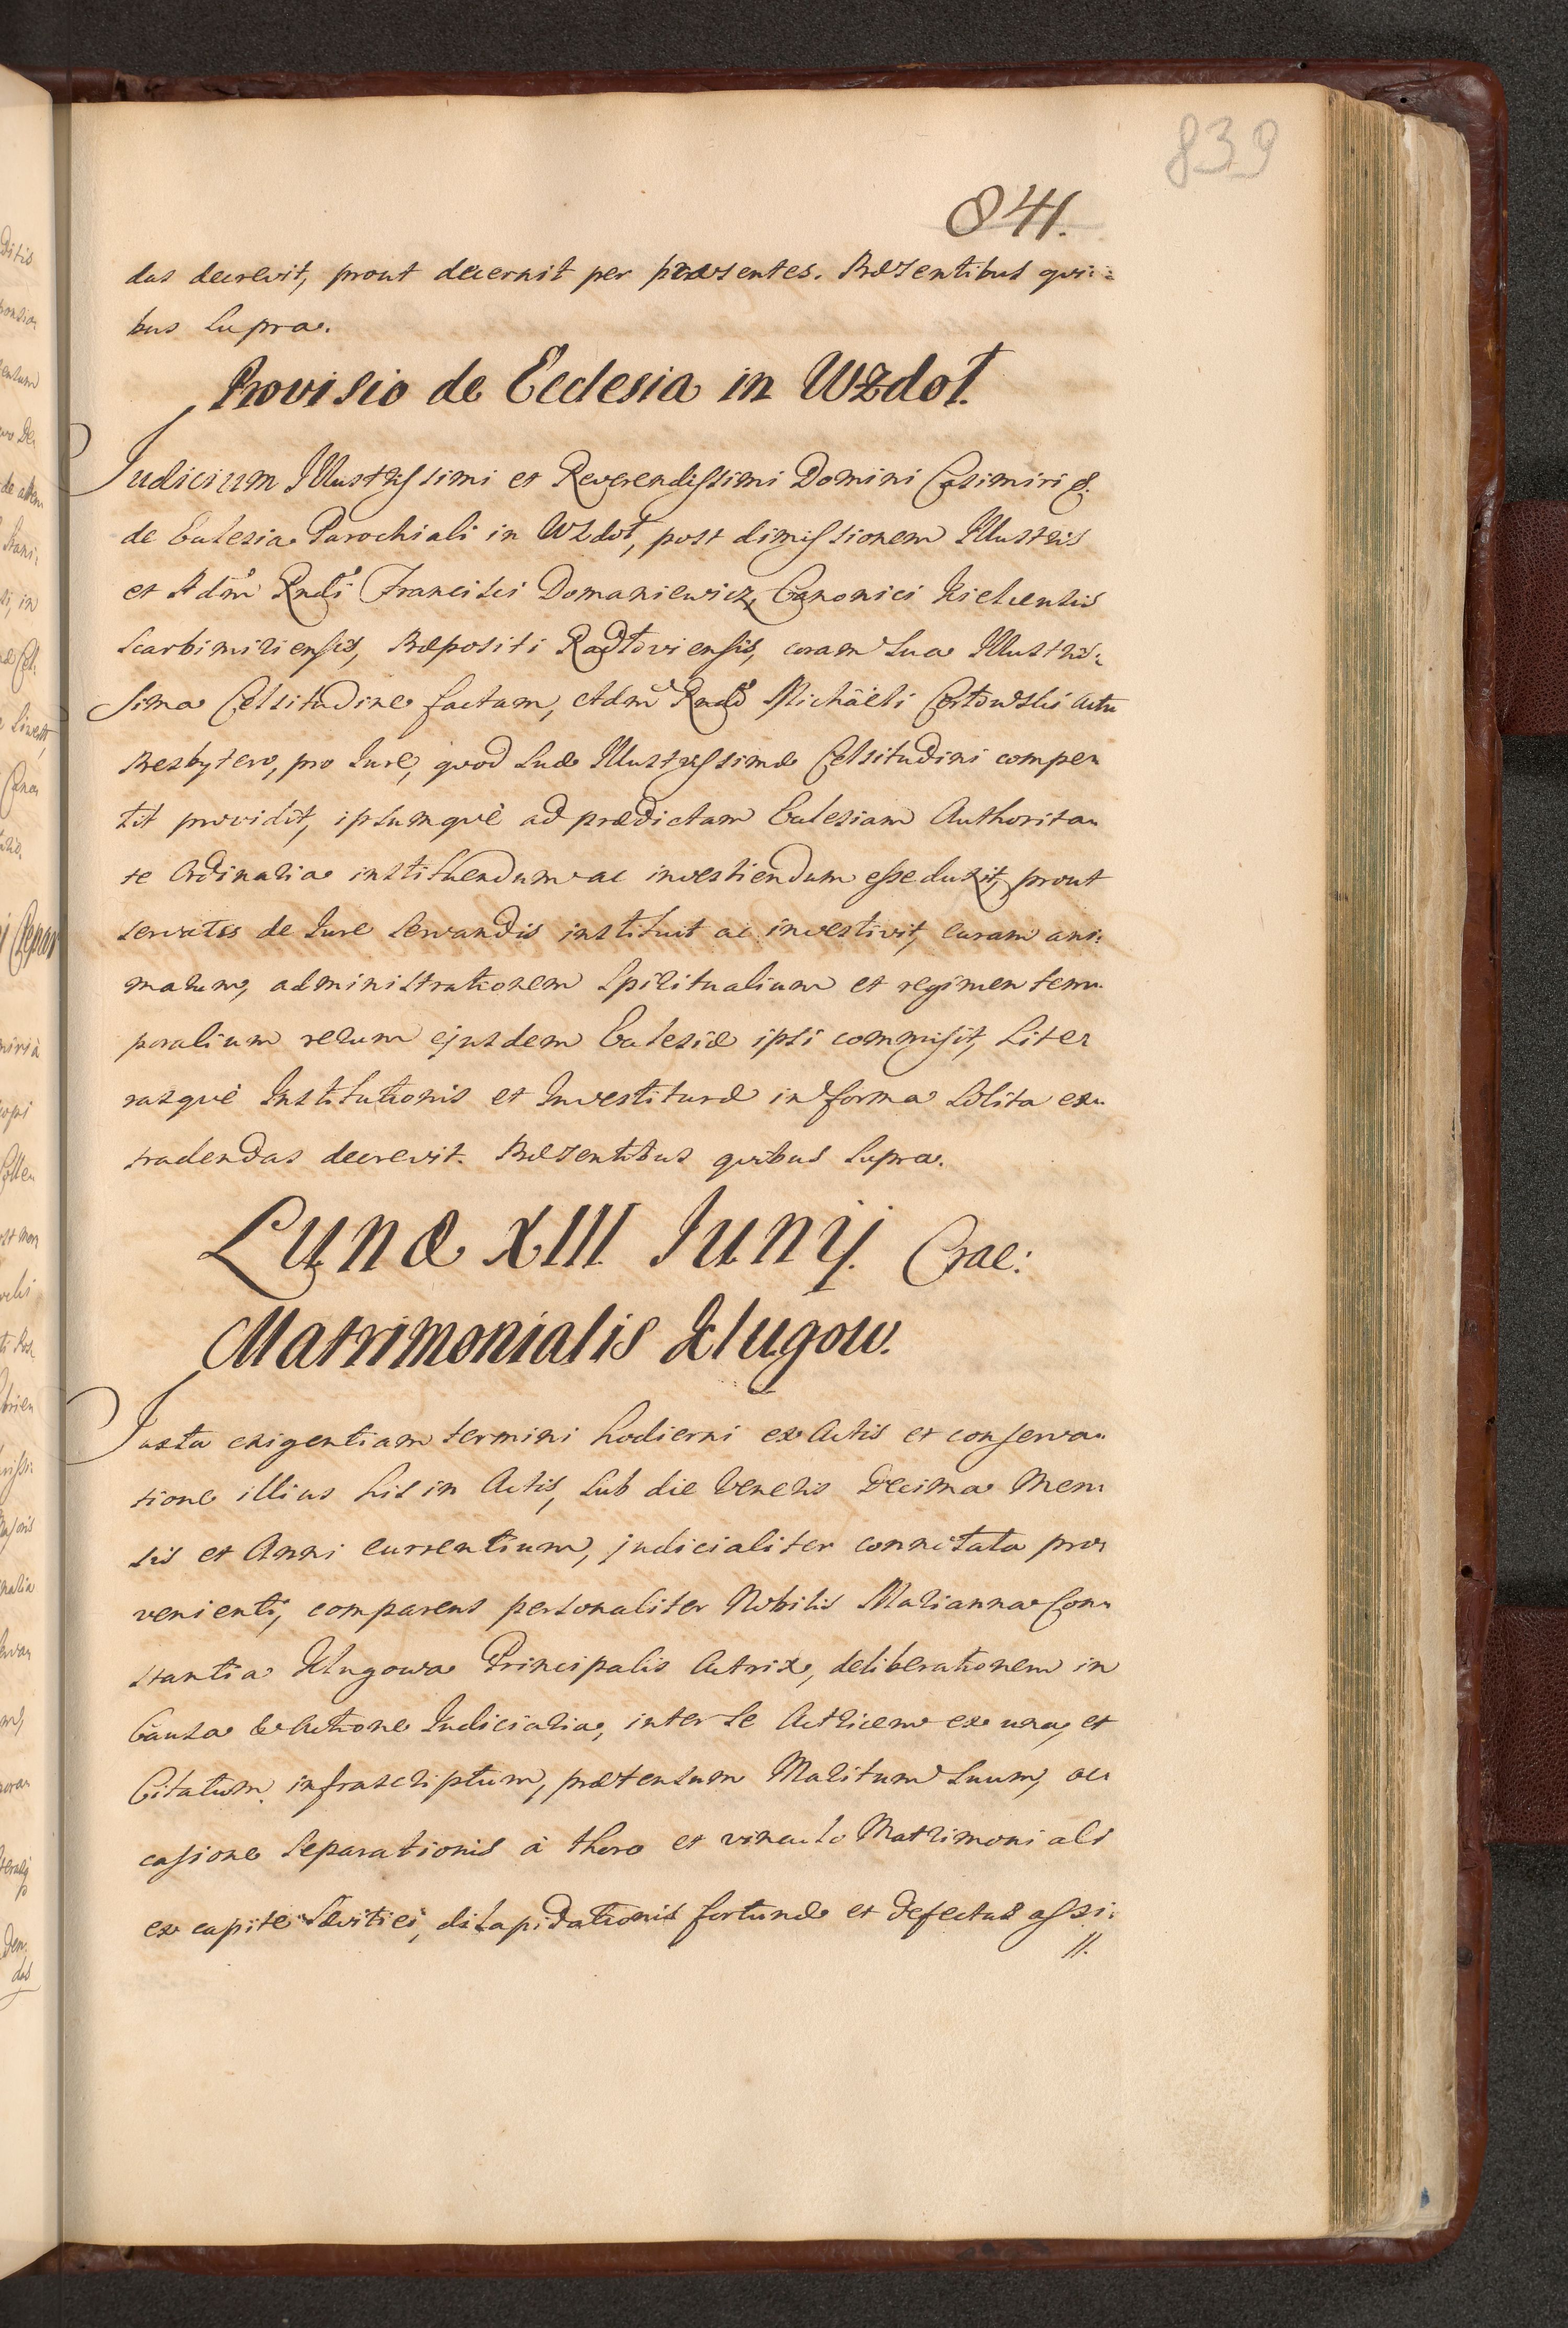 839
841.
das decrevit, prout decernit per præsentes. Præsentibus qui:
bus supra.
Provisio de Ecclesia in Wzdoł.
Judicium Illustrissimi et Reverendissimi Domini Casimiri &.
de Ecclesia Parochiali in Wzdoł, post dimissionem Illustris
et Adm Rndi Francisci Domaniewicz, Canonici Kielcensis
Scarbimiriensis, Præpositi Radłoviensis, coram Sua Illustris:
sima Celsitudine factam, Adm Rndo Michäeli Cortowski actu
Presbytero, pro Jure, quod Suæ Illustrissimæ Celsitudini compe
tit providit, ipsumquè ad prædictam Ecclesiam Authorita
te Ordinaria instituendum ac investiendum esse duxit, prout
servatis de Jure servandis instituit ac investivit, curam ani:
marum, administrationem Spiritualium et regimen tem
poralium rerum ejusdem Ecclesiæ ipsi commisit, Lite
rasquè Institutionis et Investituræ in forma solita ex
tradendas decrevit. Præsentibus quibus supra.
Lunæ XIII Junij. Crac:
Matrimonialis Klugow.
Juxta exigentiam termini hodierni ex Actis et conserva
tione illius his in Actis, sub die Veneris Decima Men
sis et Anni currentium, judicialiter connotata pro
venienti, comparens personaliter Nobilis Marianna Con
stantia Klugowa Principalis Actrix, deliberationem in
Causa & Actione Judiciaria, inter se Actricem ex una, et
Citatum infrascriptum, prætensum Maritum suum, oc
casione Separationis à thoro et vinculo Matrimoniali
ex capite Sævitiei, dilapidationis fortunæ et defectus assi:
//.